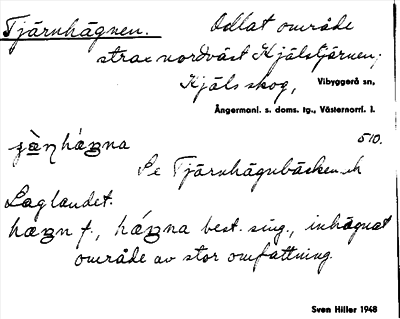 Tjärnhägnen. Odlat område
strax nordväst Kjälstjärnen;
Kjäls skog, Vibyggerå sn,
Ångermanl. s. doms. tg., Västernorrl. l.
510.
Se Tjärnhägnbäcken och
Laglandet.
best. sing., inhägnat
område av stor omfattning.
Sven Hiller 1948